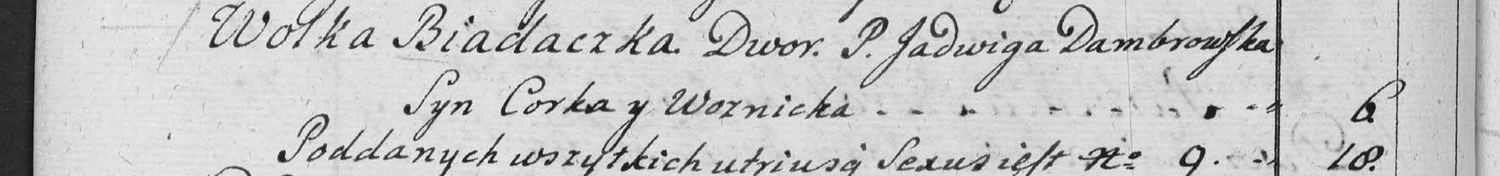 Wolka Biadaczka. Dwor. P. Jadwiga Dambrowska
Syn Corka y Woznicka - - - - - - - - - 6
Poddanych wszytkich utriusq Sexus iest No 9. - - 18.